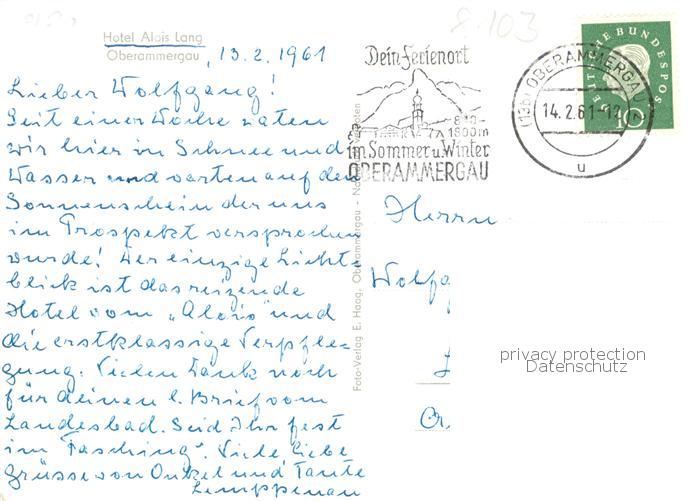 Hotel Alois Lang
Oberammergau, 13.2.1961
Lieber Wolfgang!
Seit einer Woche waten
wir hier in Schnee und
Wasser und warten auf den
Sonnenschein der uns
im Prospekt versprochen
wurde! Der einzige Licht-
blick ist das reizende
Hotel vom "Alois" und
die erstklassige Verpfle-
gung. Vielen Dank noch
für deinen l. Brief vom
Landesbad. Seid Ihr fest
im "Fasching". Viele liebe
Grüsse von Onkel und Tante
Lemppenau
Foto-Verlag E. Haag, Oberammergau - Nachdruck Verboten
8-103
Dein Ferienort
850-
1800m
im Sommer u. Winter
OBERAMMERGAU
(13b) OBERAMMERGAU
14.2.61-12
u
DEUTSCHE BUNDESPOST
10
Herrn
Wolfg
privacy protection
Datenschutz